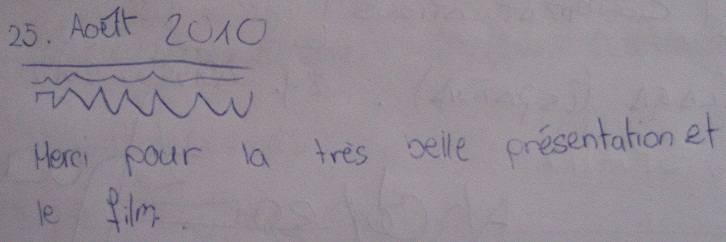 25. Août 2010
Merci pour la très belle présentation et
le film.